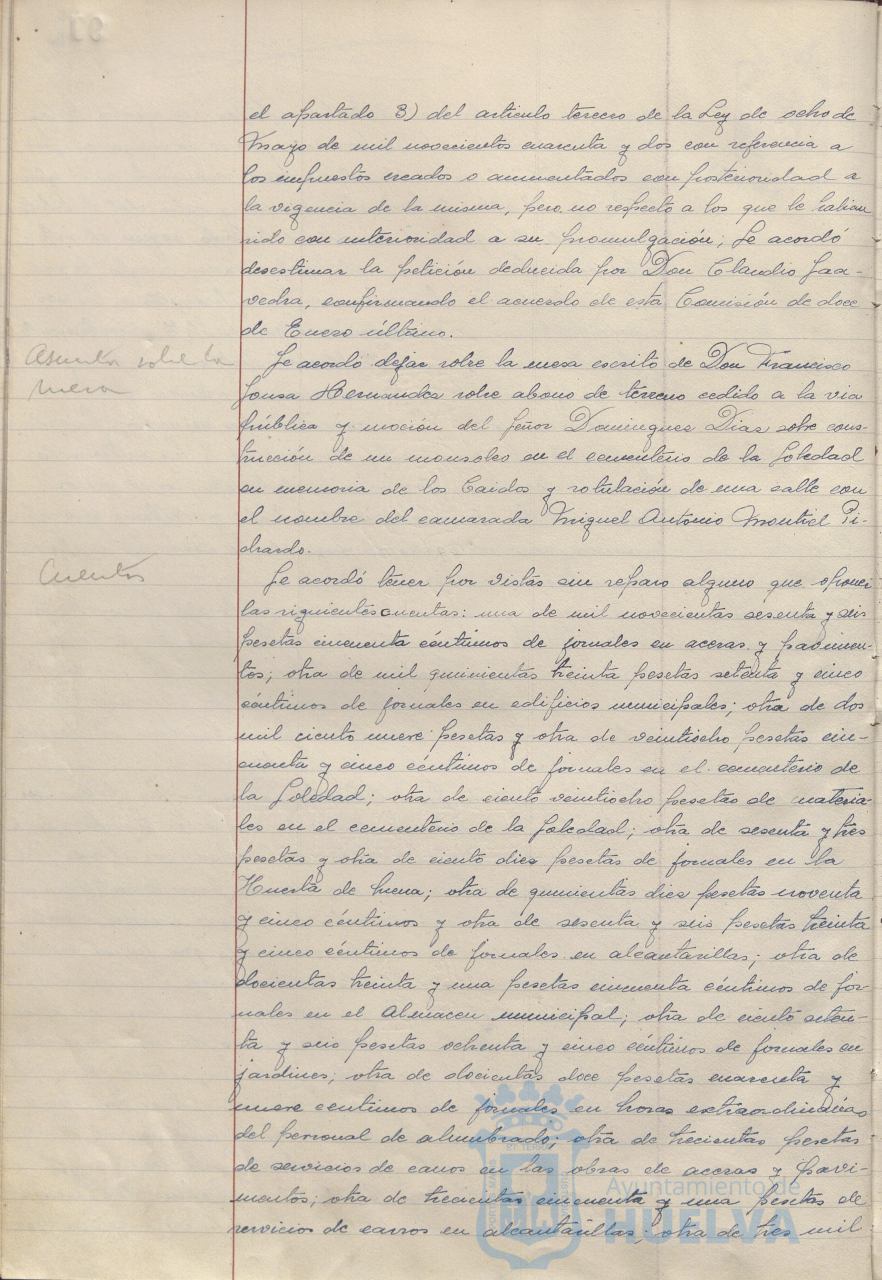 el apartado 3) del articulo tercero de la Ley de ocho de
Mayo de mil novecientos cuarenta y dos con referencia a
los impuestos creados o aumentados con posterioridad a
la vigencia de la misma, pero no respecto a los que le habian
sido con anterioridad a su promulgación; Se acordó
desestimar la petición deducida por Don Claudio Saa-
vedra, confirmando el acuerdo de esta Comisión de doce
de Enero último.
Asuntos sobre la
mesa
Se acordó dejar sobre la mesa escrito de Don Francisco
Sousa Hernandez sobre abono de terreno cedido a la via
pública y moción del Señor Dominguez Dias sobre cons-
trucción de un mausoleo en el cementerio de la Soledad
en memoria de los Caidos y rotulación de una calle con
el nombre del camarada Miguel Antonio Montiel Pi-
chardo.
Cuentas
Se acordó tener por vistas sin reparo alguno que oponer
las siguientes cuentas: una de mil novecientas sesenta y seis
pesetas cincuenta céntimos de jornales en aceras y pavimen-
tos; otra de mil quinientas treinta pesetas setenta y cinco
céntimos de jornales en edificios municipales; otra de dos
mil ciento nueve pesetas y otra de veintiocho pesetas cin-
cuenta y cinco céntimos de jornales en el cementerio de
la Soledad; otra de ciento veintiocho pesetas de materia-
les en el cementerio de la Soledad; otra de sesenta y tres
pesetas y otra de ciento dies pesetas de jornales en la
Huerta de Mena; otra de quinientas dies pesetas noventa
y cinco céntimos y otra de sesenta y seis pesetas treinta
y cinco céntimos de jornales en alcantarillas; otra de
docientas treinta y una pesetas cincuenta céntimos de jor-
nales en el Almacen municipal; otra de ciento seten-
ta y seis pesetas ochenta y cinco céntimos de jornales en
jardines; otra de docientas doce pesetas cuarenta y
nueve centimos de jornales en horas extraordinarias
del personal de alumbrado; otra de trecientas pesetas
de servicios de carros en las obras de aceras y pavi-
mentos; otra de trecientas cincuenta y una pesetas de
servicios de carros en alcantarillas; otra de tres mil
Ayuntamiento de
HUELVA